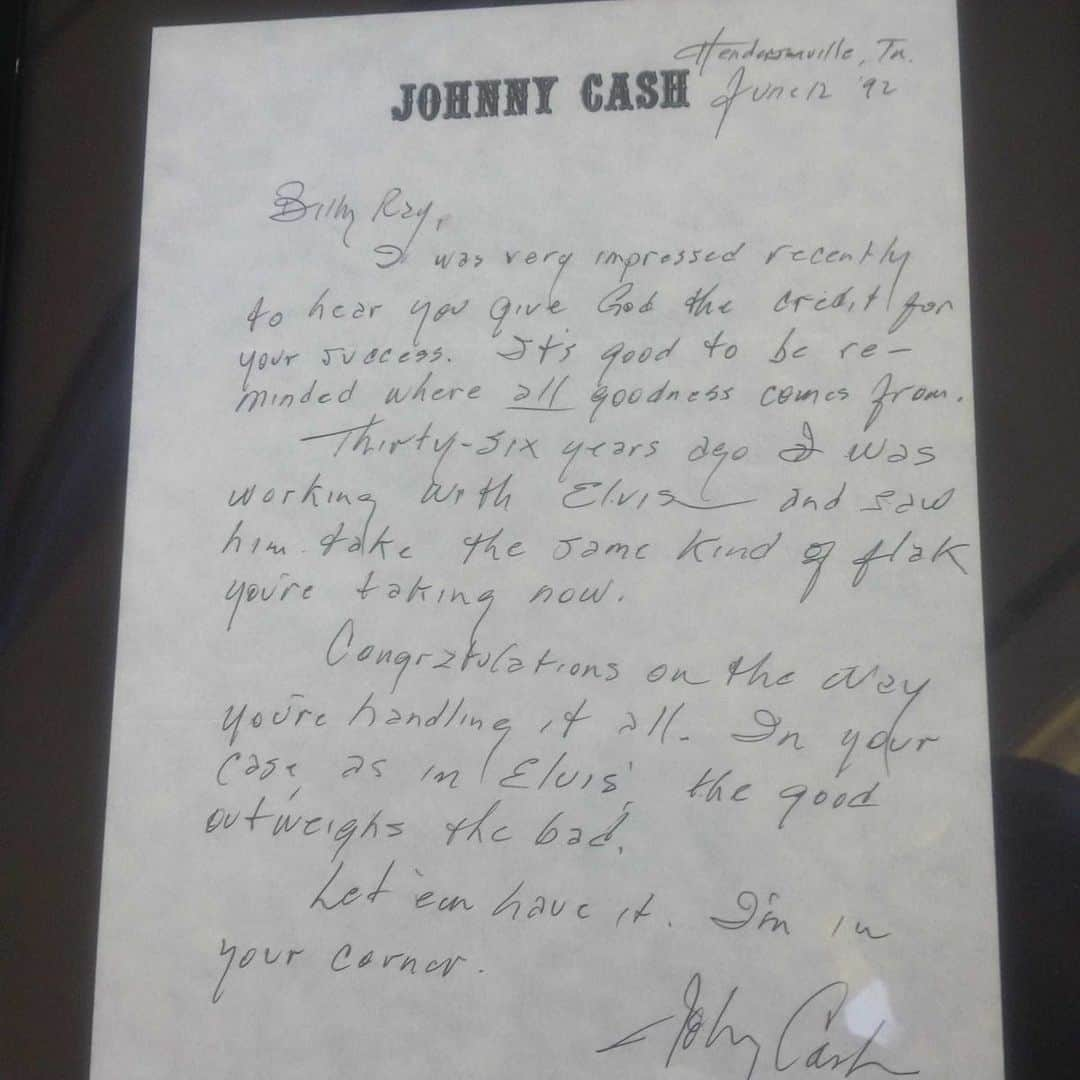 Hendersonville, Tn.
JOHNNY CASH June 12 '92
Billy Ray,
I was very impressed recently
to hear you give God the credit for
your success. It's good to be re-
minded where all goodness comes from.
Thirty-six years ago I was
working with Elvis and saw
him take the same kind of flak
you're taking now.
Congratulations on the way
you're handling it all. In your
case, as in Elvis', the good
outweighs the bad.
Let 'em have it. I'm in
your corner.
Johnny Cash